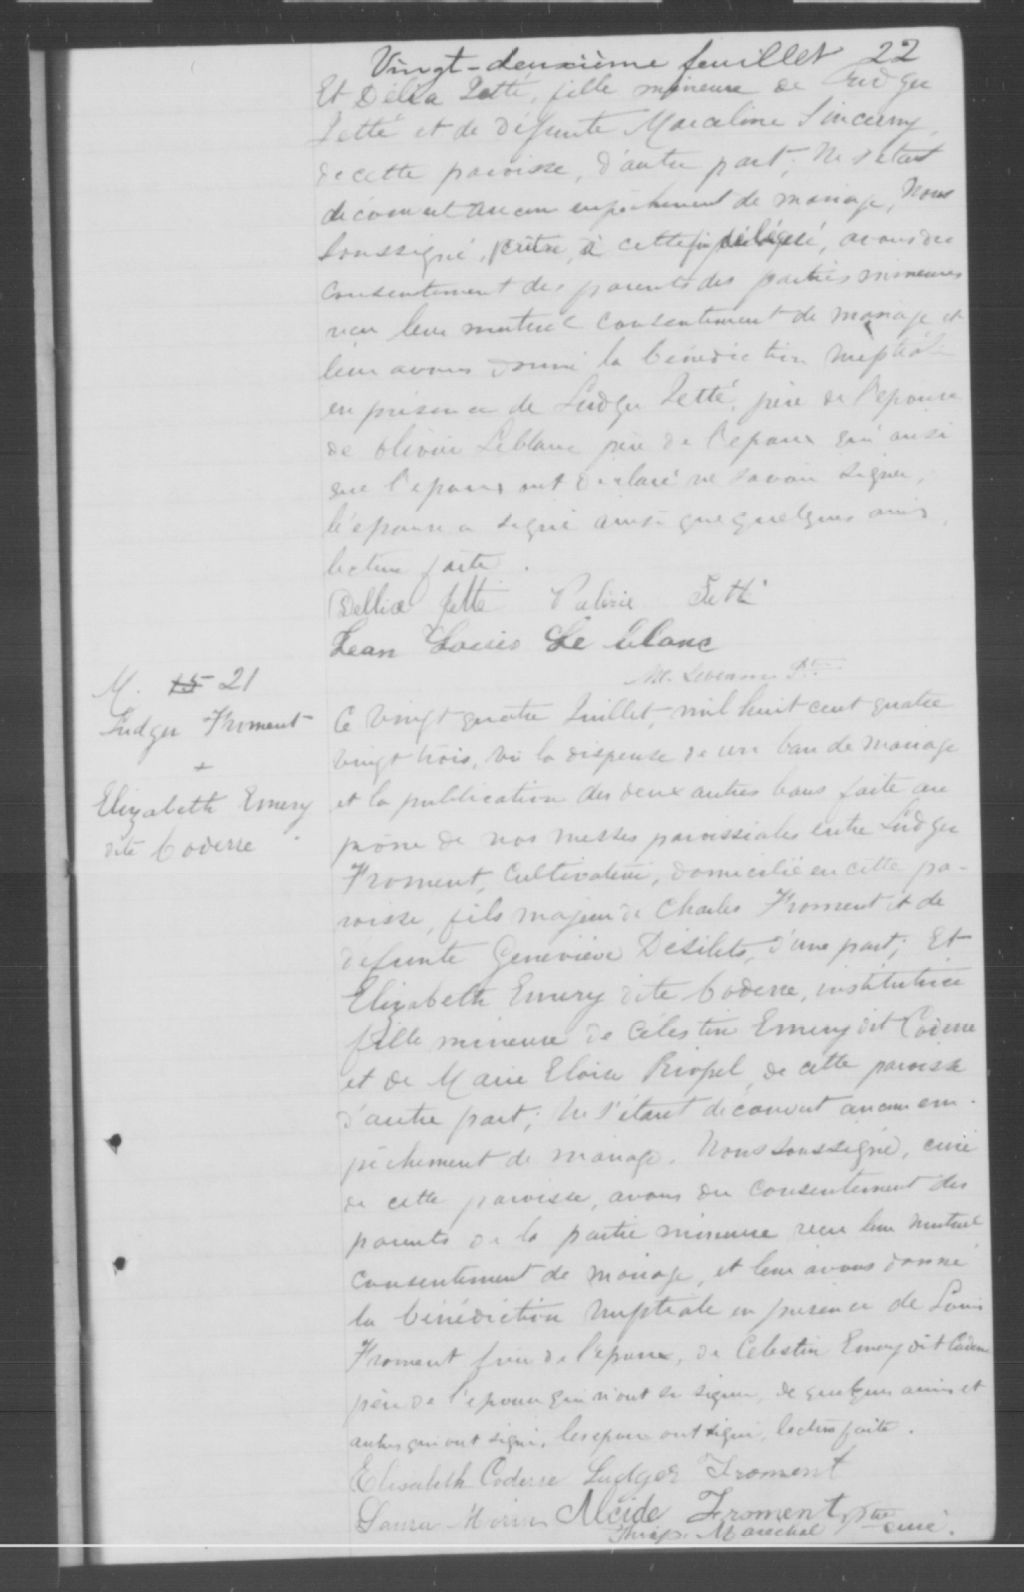 Vingt-deuxième feuillet 22
Et Délia Jetté, fille mineure de Ludger
Jetté et de défunte Marceline Sincerny,
de cette paroisse, d'autre part; Ne s'étant
découvert aucun empêchement de mariage, Nous
soussigné, prêtre, à cette fin délégué, avons du
consentement des parents des parties mineures
reçu leur mutuel consentement de mariage et
leur avons donné la bénédiction nuptiale
en présence de Ludger Jetté, père de l'épouse
de Olivier Leblanc père de l'époux qui ainsi
que l'époux ont déclaré ne savoir signer,
l'épouse a signé ainsi que quelques amis,
lecture faite.
Dellia Jetté Valérie Jetté
Jean Louis Le Blanc
M. Ptre
M. 15 21
Ludger Froment
+
Elizabeth Emery
dite Coderre
Ce vingt quatre Juillet, mil huit cent quatre
vingt trois, vu la dispense de un ban de mariage
et la publication des deux autres bans faite au
prône de nos messes paroissiales entre Ludger
Froment, Cultivateur, domicilié en cette pa-
roisse, fils majeur de Charles Froment et de
défunte Geneviève Désilets, d'une part; Et
Elizabeth Emery dite Coderre, institutrice
fille mineure de Célestin Emery dit Coderre
et de Marie Eloise Riopel, de cette paroisse
d'autre part; Ne s'étant découvert aucun em-
pêchement de mariage, Nous soussigné, curé
de cette paroisse, avons du consentement des
parents de la partie mineure reçu leur mutuel
consentement de mariage, et leur avons donné
la bénédiction nuptiale en présence de Louis
Froment frère de l'époux, de Célestin Emery dit Coderre
père de l'épouse qui n'ont su signer, de quelques amis et
autres qui ont signé, les époux ont signé, lecture faite.
Elisabeth Coderre Ludger Froment
Laura Morin Alcide Froment
Thiop. Maréchal Ptre curé.